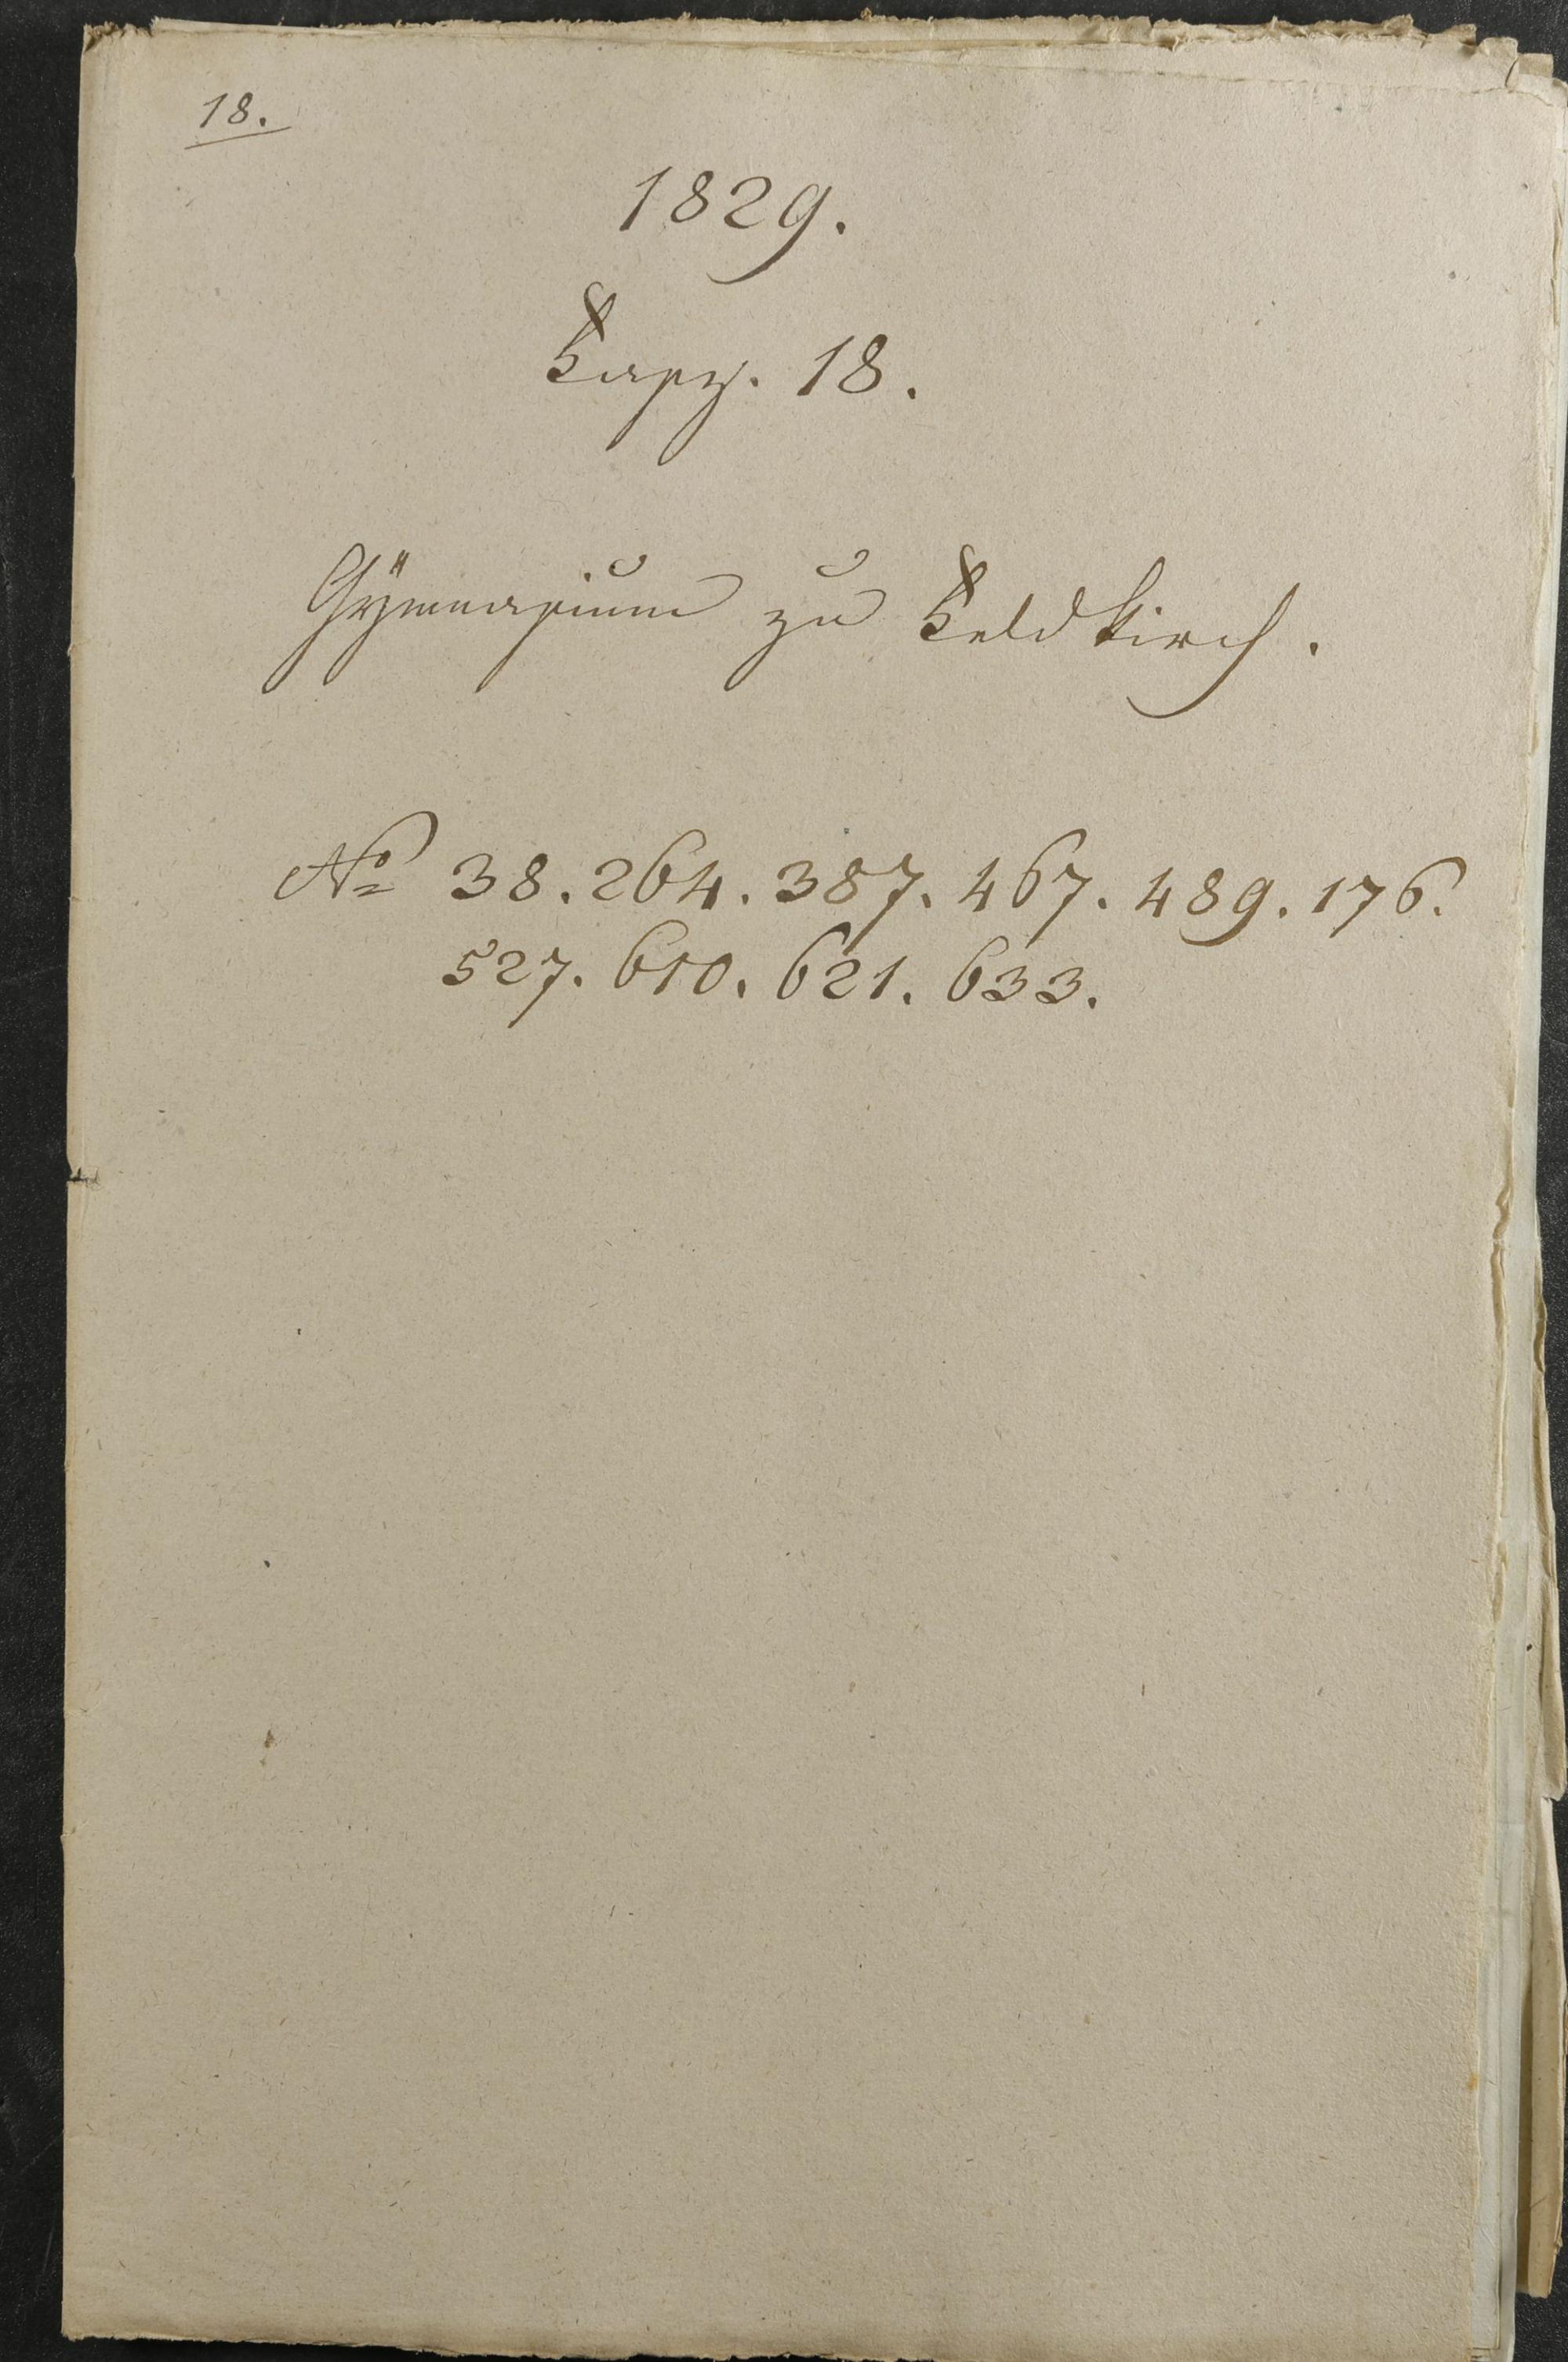 18.
1829.
Fasz. 18.
Gÿmnasium zu Feldkirch.
No 38. 264. 387. 467. 489. 176.
527. 610. 621. 633.